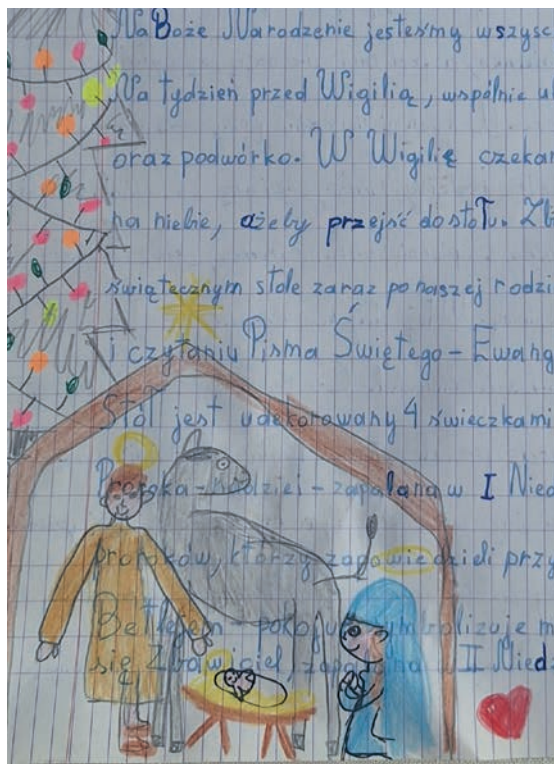 Na Boże Narodzenie jesteśmy wszysc
Na tydzień przed Wigilią, wspólnie u
oraz podwórko. W Wigilię czekam
na niebie, ażeby przejść do stołu. Zb
świątecznym stole zaraz po naszej rodzi
i czytaniu Pisma Świętego - Ewang
Stół jest udekorowany 4 świeczkami
Proroka - nadziei - zapalana w I Nied
proroków, którzy zapowiedzieli przy
Betlejem - pokoju symbolizuje m
się Zbawiciel, zapalana w II Niedz